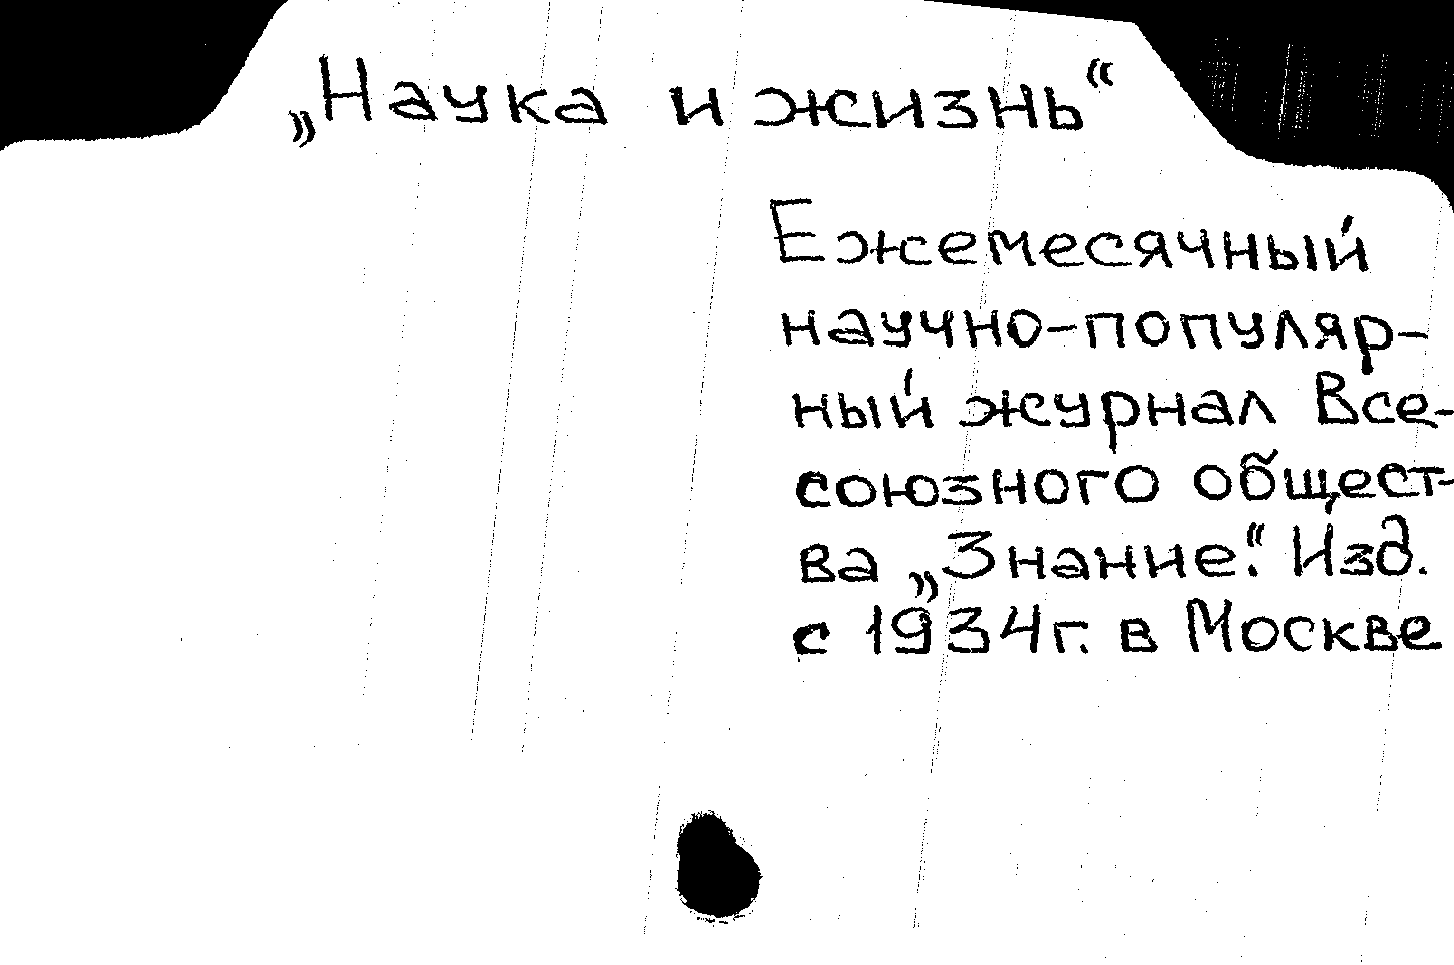 „Наука и жизнь“
Ежемесячный
научно-популяр-
ный журнал Все-
союзного общест-
ва „Знание“. Изд.
с 1934г. в Москве